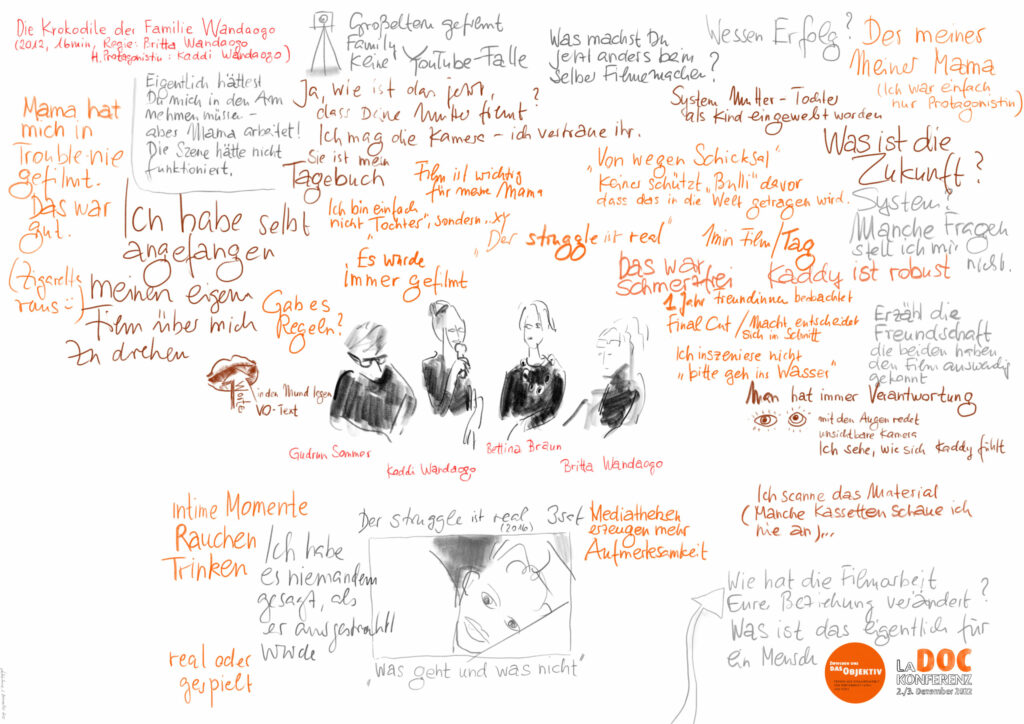 Die Krokodile der Familie Wandaogo
(2012, 16min, Regie: Britta Wandaogo
H. Protagonistin: Kaddi Wandaogo)
Großeltern gefremt
Family
Keine YouTube-Falle
Was machst Du
jetzt anders beim
Selber Filmemachen?
Wessen Erfolg?
Der meiner
Meiner Mama
(Ich war einfach
nur Protagonistin)
Eigentlich hättest
Du mich in den Arm
nehmen müssen -
aber Mama arbeitet!
Die Szene hätte nicht
funktioniert.
Ja, wie ist das jetzt,
dass Deine Mutter filmt?
Ich mag die Kamera - ich vertraue ihr.
Sie ist mein
Tagebuch
System Mutter-Tochter
als Kind eingeweßt worden
Mama hat
mich in
Trouble nie
gefilmt.
Das war
gut.
(Zigarette
raus :-)
Film ist wichtig
für meine Mama
Ich bin einfach
nicht "Tochter", sondern.. xy
"Von wegen Schicksal"
Keiner schützt "Bulli" davor
dass das in die Welt getragen wird.
Was ist die
Zukunft?
System?
Manche Fragen
stell ich mir
nicht.
Ich habe selbst
angefangen
meinen eigenen
Film über mich
zu drehen
"Der struggle ist real"
1min Film/Tag
Es wurde
immer gefilmt
Das war
schmerzfrei
Kaddy ist robust
Gab es
Regeln?
1 Jahr Freundinnen beobachtet
Final Cut / Macht, entscheidet
sich im Schnitt
Ich inszeniere nicht
"bitte geh ins Wasser"
Erzähl die
Freundschaft
die beiden haben
den Film auswendig
gekonnt
Worte
in den Mund legen
VO-Text
Man hat immer Verantwortung
mit den Augen redet
unsichtbare Kamera
Ich sehe, wie sich Kaddy fühlt
Gudrun Sommer
Kaddi Wandaogo
Bettina Braun
Britta Wandaogo
Intime Momente
Rauchen
Trinken
Ich habe
es niemandem
gesagt, als
er ausgestrahlt
wurde
real oder
gespielt
Der struggle ist real
(2016)
3sat
Mediatheken
erzeugen mehr
Aufmerksamkeit
"Was geht und was nicht"
Ich scanne das Material
(Manche Kassetten schaue ich
nie an)...
Wie hat die Filmarbeit
Eure Beziehung verändert?
Was ist das eigentlich für
ein Mensch
Zwischen uns
das Objektiv
LaDOC
Konferenz
2./3. Dezember 2022